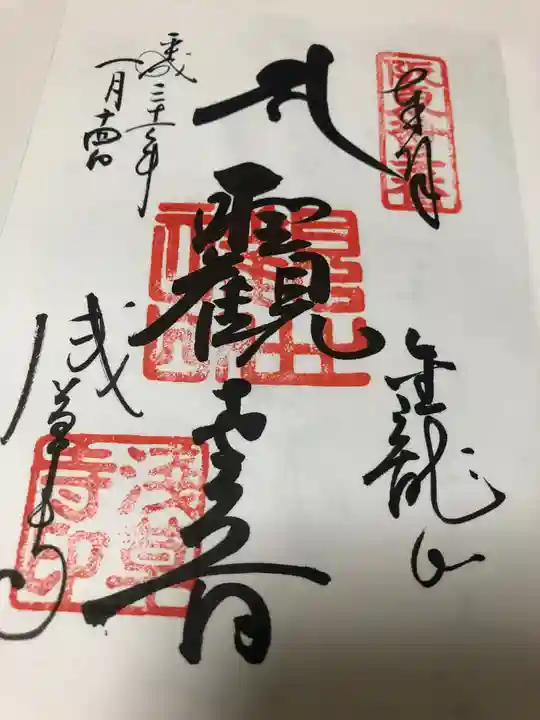 奉拝
阪東拾三番
金龍山
觀世音
平成三十一年
一月十四日
浅草寺
浅草寺印